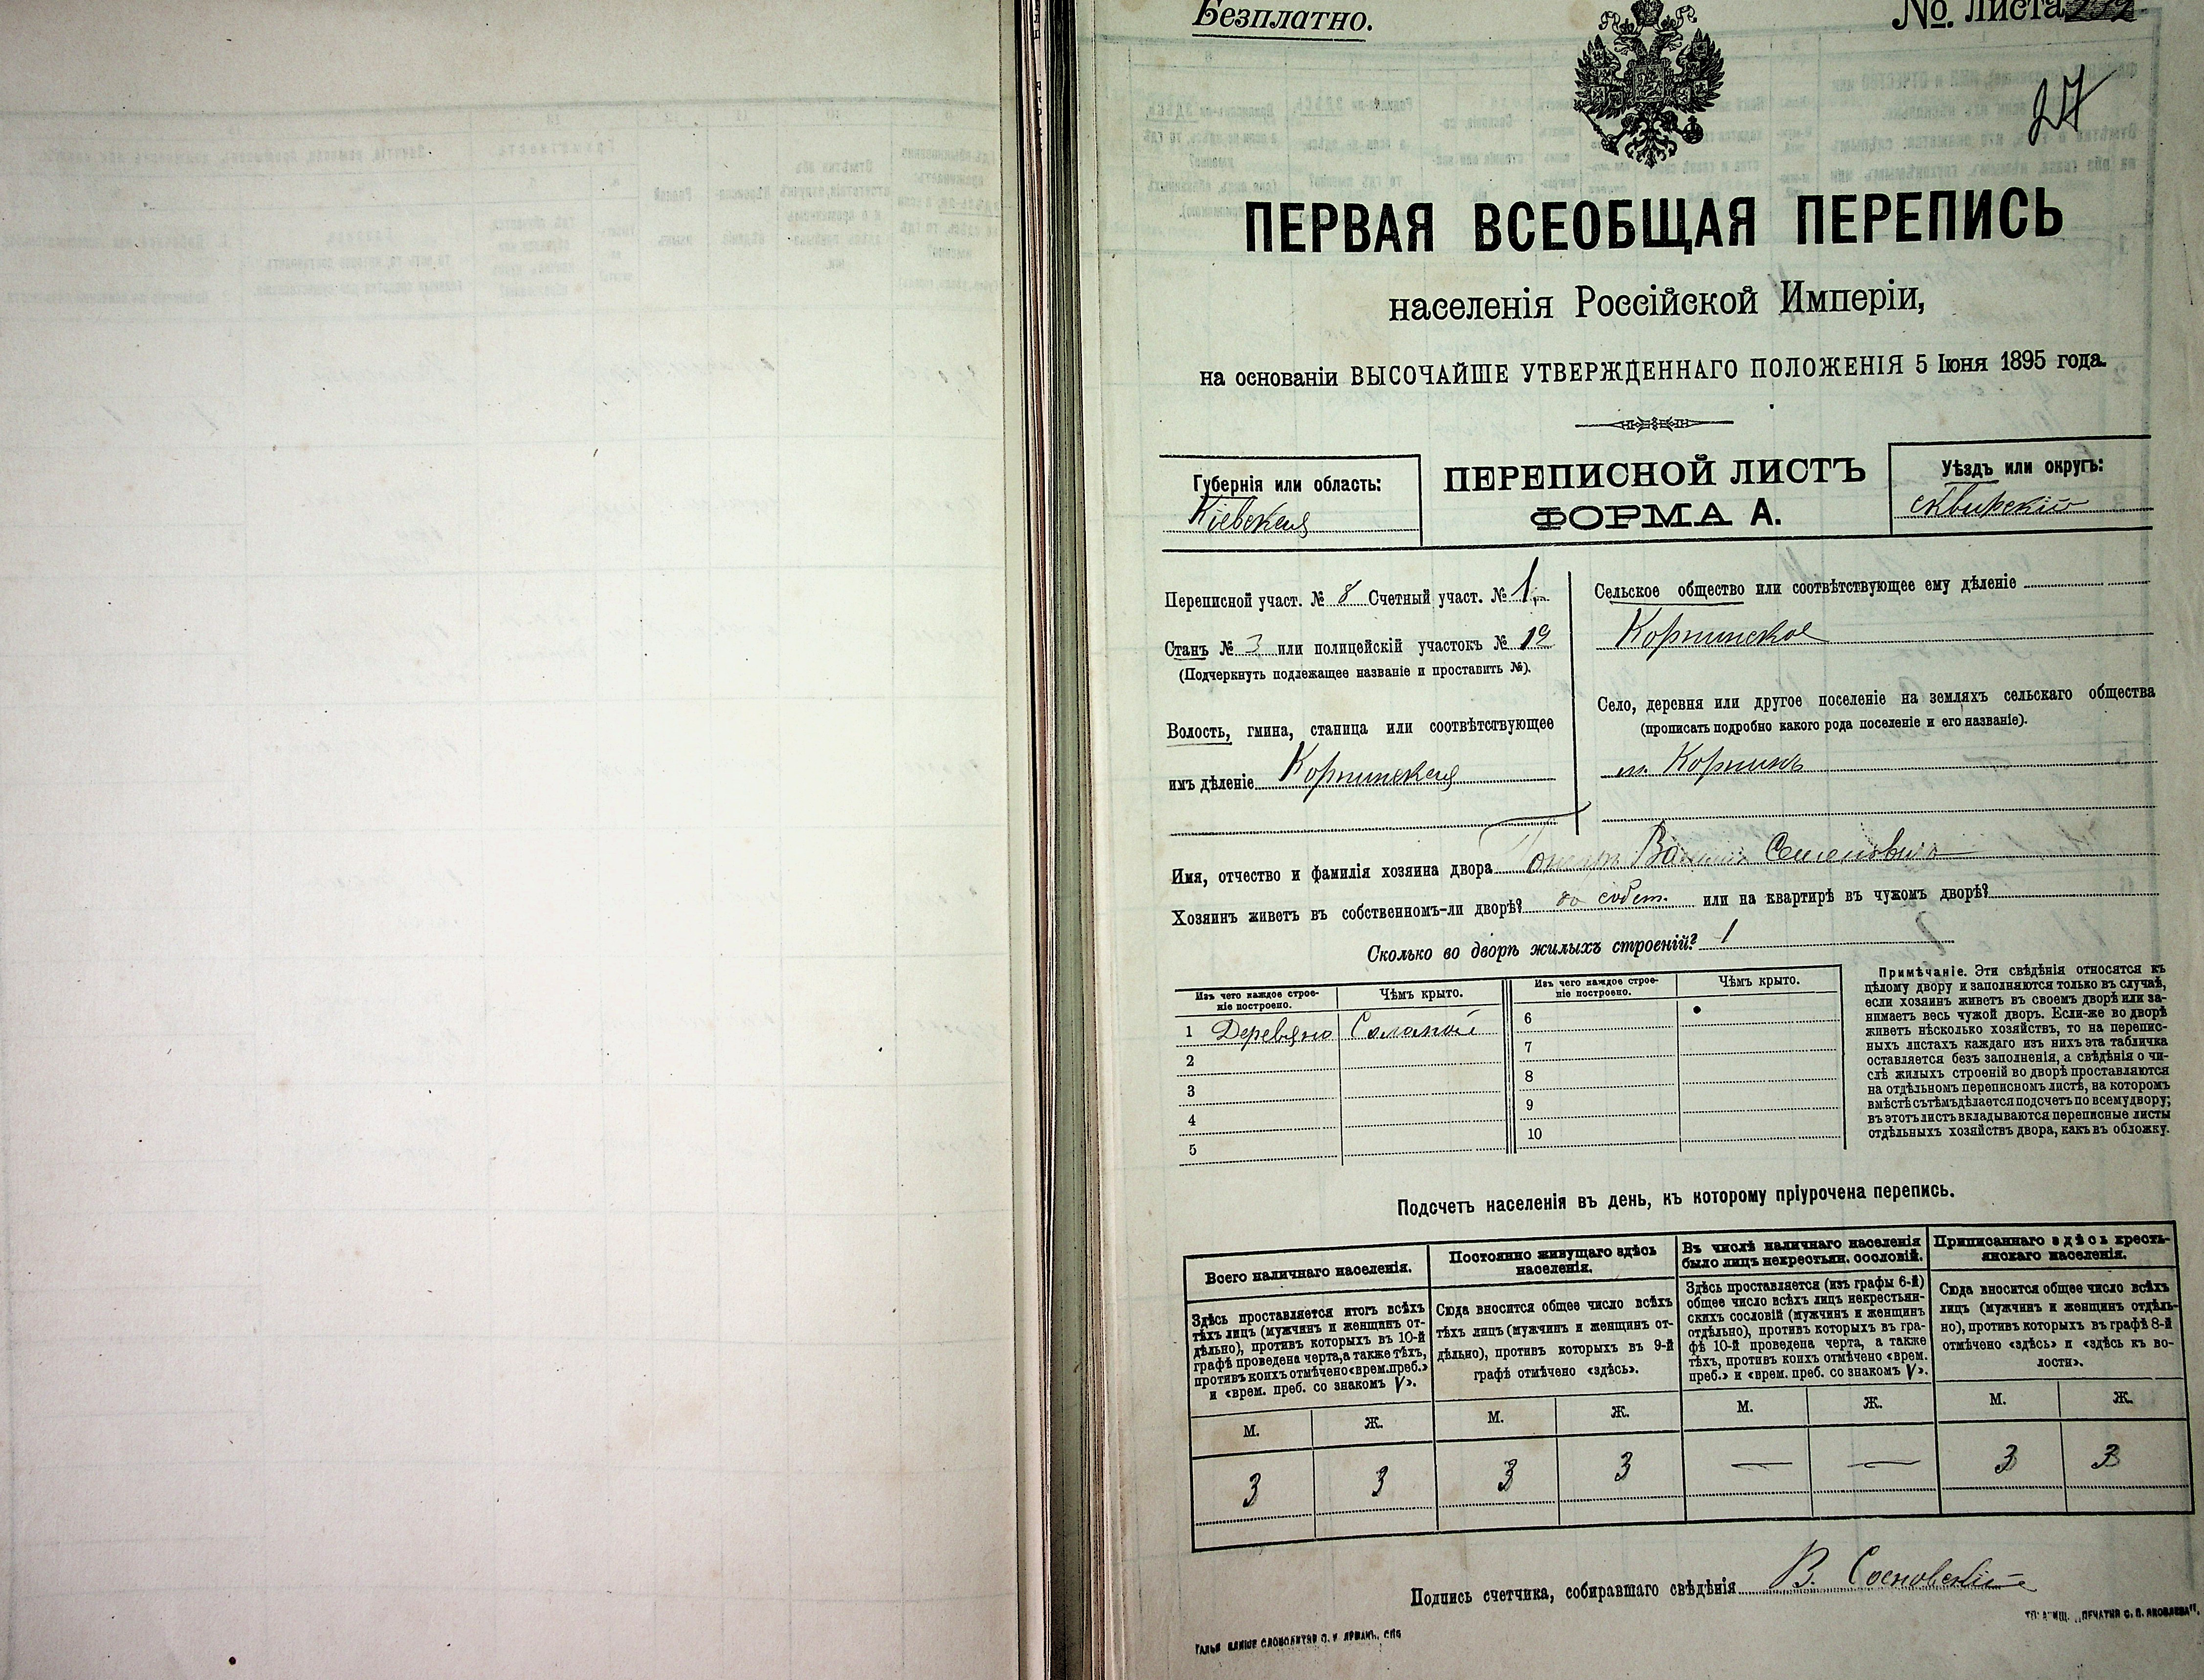 Безплатно.
№ листа
27
ПЕРВАЯ ВСЕОБЩАЯ ПЕРЕПИСЬ
населенія Россійской Имперіи,
на основаніи ВЫСОЧАЙШЕ УТВЕРЖДЕННАГО ПОЛОЖЕНІЯ 5 Іюня 1895 года.
Губернія или область:
Кіевская
ПЕРЕПИСНОЙ ЛИСТЪ
ФОРМА А.
Уѣздъ или округъ:
сквирскій
Переписной участ. № 8 Счетный участ. № 1
Станъ № 3 или полицейскій участокъ № 19
(Подчеркнуть подлежащее названіе и проставить №).
Волость, гмина, станица или соотвѣтствующее
имъ дѣленіе Корнинская
Сельское общество или соотвѣтствующее ему дѣленіе
Корнинское
Село, деревня или другое поселеніе на земляхъ сельскаго общества
(прописать подробно какого рода поселеніе и его названіе).
м. Корнинъ
Имя, отчество и фамилія хозяина двора Семеновичъ
Хозяинъ живетъ въ собственномъ-ли дворѣ? собст. или на квартирѣ въ чужомъ дворѣ?
Сколько во дворѣ жилыхъ строеній? 1
Изъ чего каждое строе-
ніе построено.
Чѣмъ крыто.
Изъ чего каждое строе-
ніе построено.
Чѣмъ крыто.
1 Деревяно Соломой
2
3
4
5
6
7
8
9
10
Примѣчаніе. Эти свѣдѣнія относятся къ
цѣлому двору и заполняются только въ случаѣ,
если хозяинъ живетъ въ своемъ дворѣ или за-
нимаетъ весь чужой дворъ. Если-же во дворѣ
живетъ нѣсколько хозяйствъ, то на перепис-
ныхъ листахъ каждаго изъ нихъ эта табличка
оставляется безъ заполненія, а свѣдѣнія о чи-
слѣ жилыхъ строеній во дворѣ проставляются
на отдѣльномъ переписномъ листѣ, на которомъ
вмѣстѣ съ тѣмъ дѣлается подсчетъ по всему двору;
въ этотъ листъ вкладываются переписные листы
отдѣльныхъ хозяйствъ двора, какъ въ обложку.
Подсчетъ населенія въ день, къ которому пріурочена перепись.
Всего наличнаго населенія.
Здѣсь проставляется итогъ всѣхъ
тѣхъ лицъ (мужчинъ и женщинъ от-
дѣльно), противъ которыхъ въ 10-й
графѣ проведена черта, а также тѣхъ,
противъ коихъ отмѣчено «врем. преб.»
и «врем. преб. со знакомъ V».
Постоянно живущаго здѣсь
населенія.
Сюда вносится общее число всѣхъ
тѣхъ лицъ (мужчинъ и женщинъ от-
дѣльно), противъ которыхъ въ 9-й
графѣ отмѣчено «здѣсь».
Въ числѣ наличнаго населенія
было лицъ некрестьян. сословій.
Здѣсь проставляется (изъ графы 6-й)
общее число всѣхъ лицъ некрестьян-
скихъ сословій (мужчинъ и женщинъ
отдѣльно), противъ которыхъ въ гра-
фѣ 10-й проведена черта, а также
тѣхъ, противъ коихъ отмѣчено «врем.
преб.» и «врем. преб. со знакомъ V».
Приписаннаго здѣсь кресть-
янскаго населенія.
Сюда вносится общее число всѣхъ
лицъ (мужчинъ и женщинъ отдѣль-
но), противъ которыхъ въ графѣ 8-й
отмѣчено «здѣсь» и «здѣсь къ во-
лости».
М. Ж. М. Ж. М. Ж. М. Ж.
3 3 3 3 — — 3 3
Подпись счетчика, собиравшаго свѣдѣнія В. Сосновскій